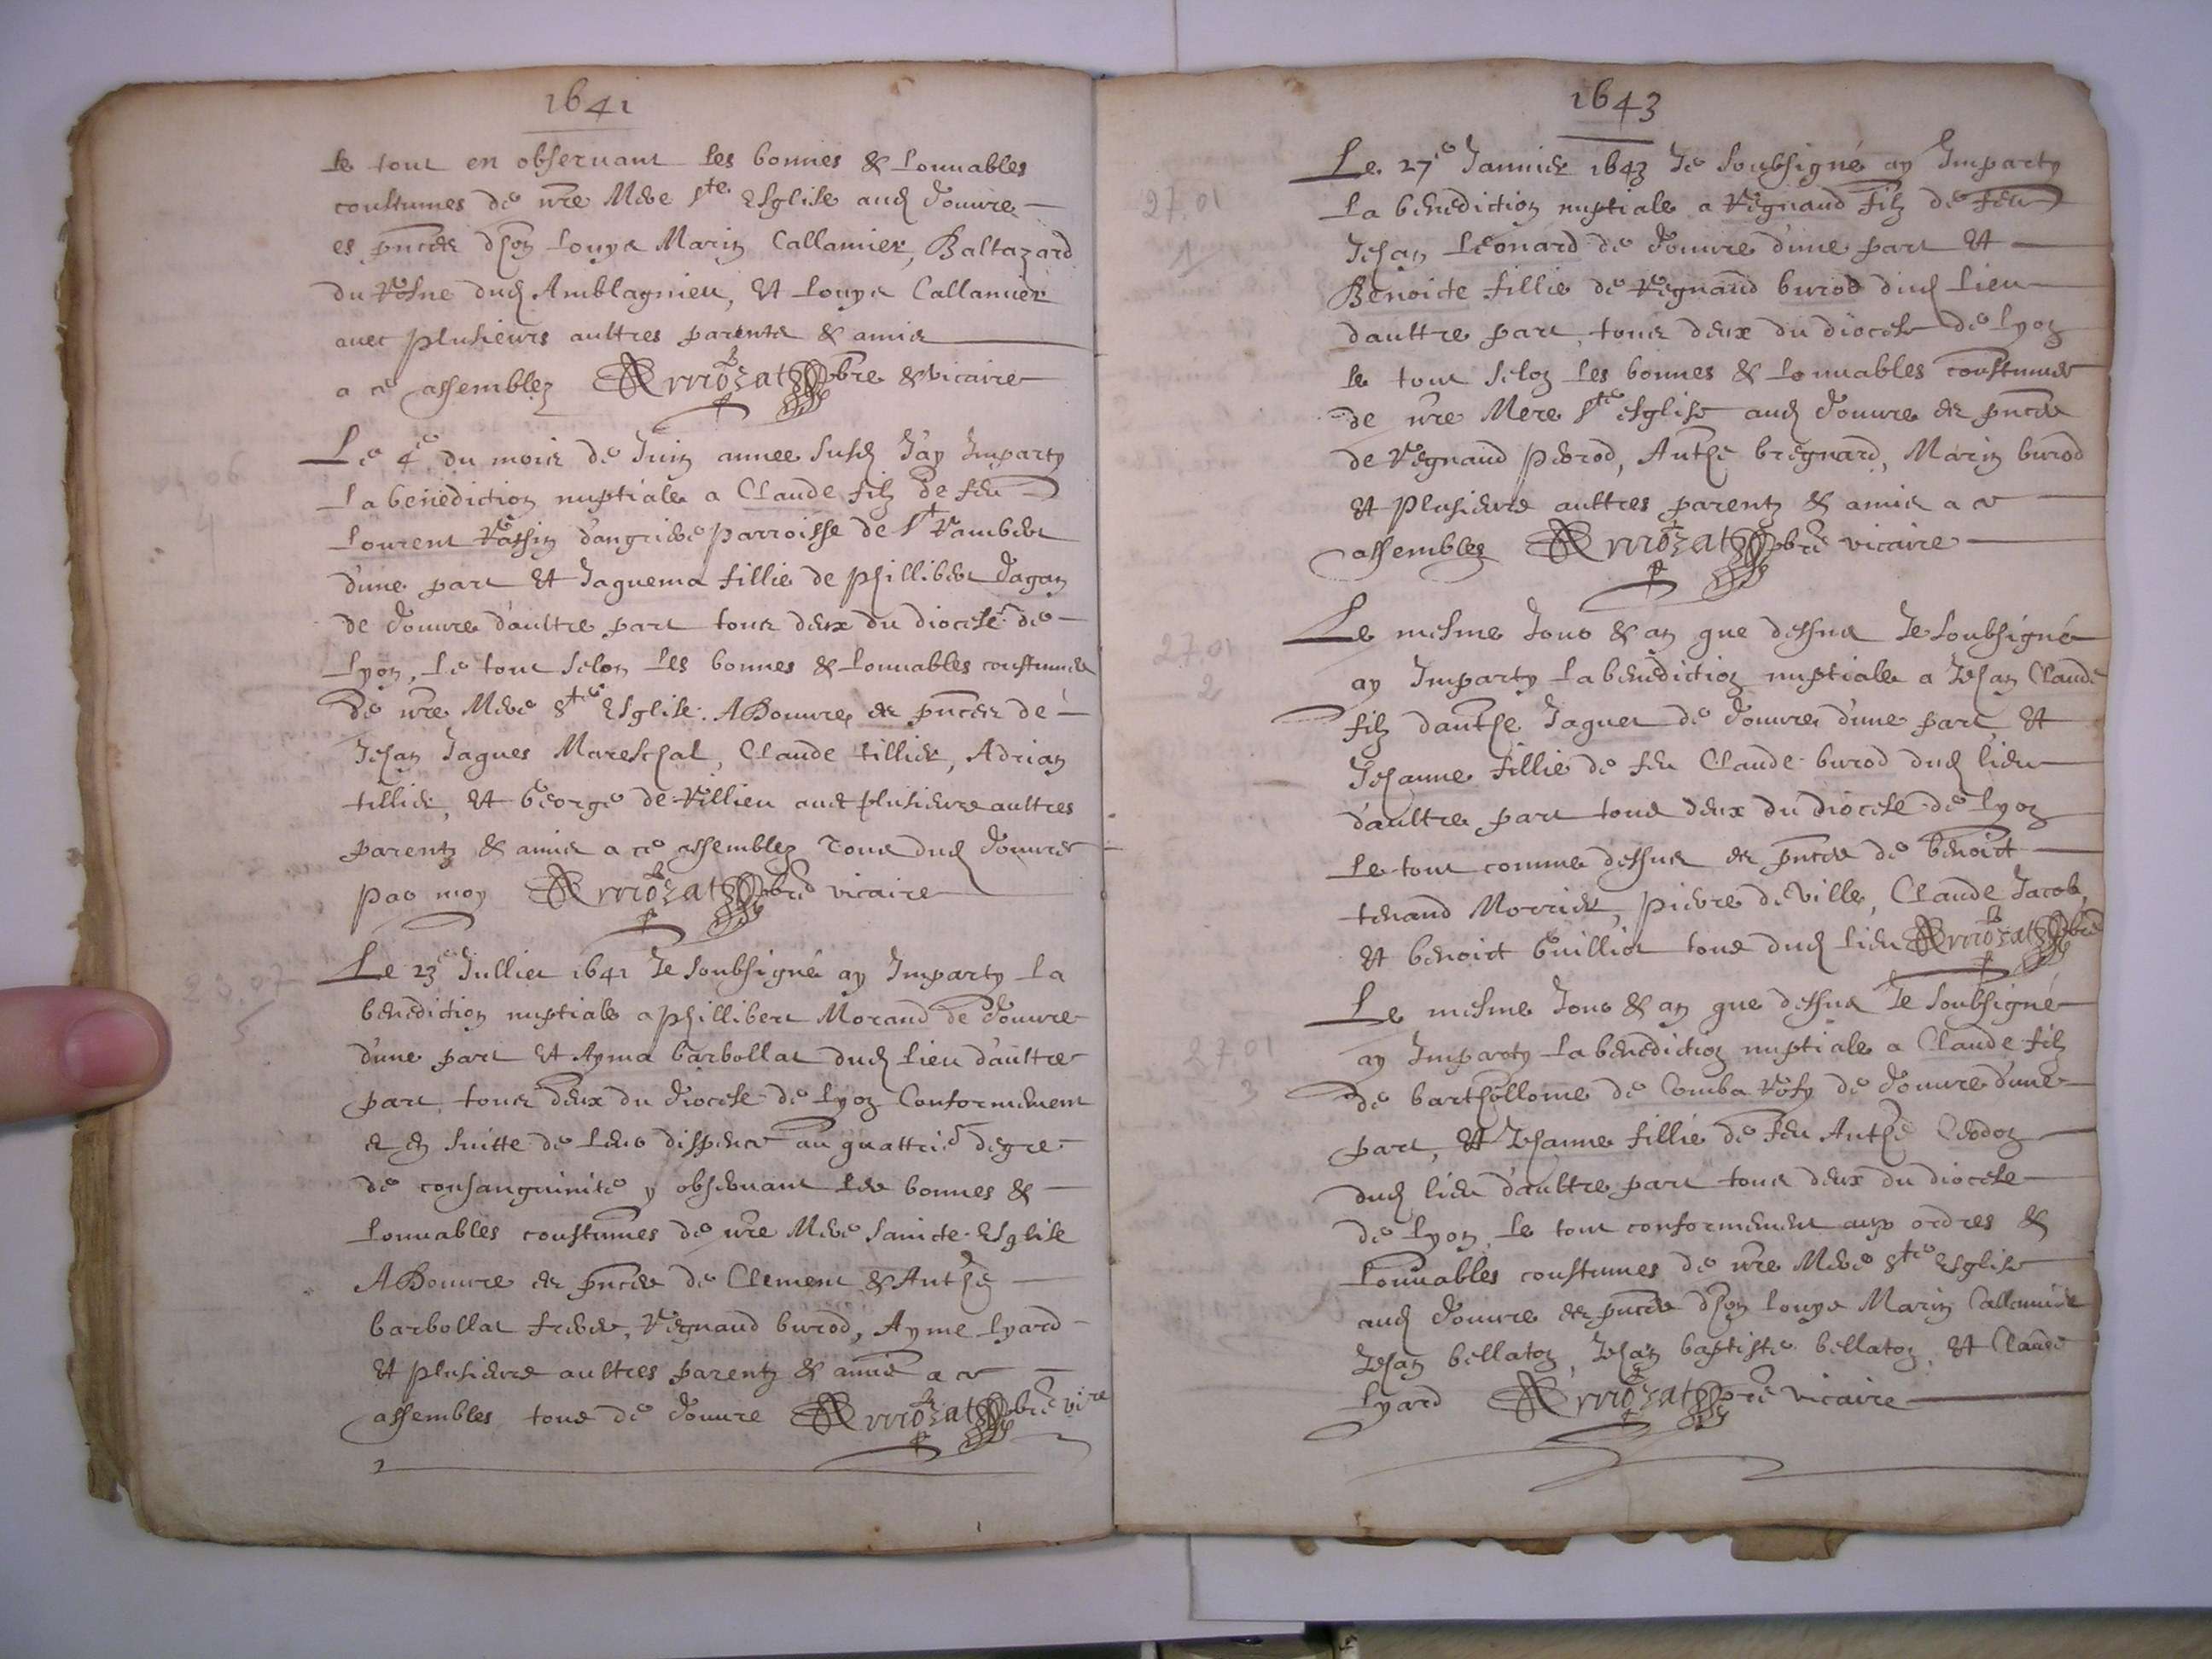 1641
le tout en obseruant les bonnes & louuables
coustumes de nre Mere Ste Esglise aud Douure
es pnces d'hon Louys Marin Callamier, Baltazard
du Rosne dud Amblagnieu, et Louys Callamier
auec plusieurs aultres parents & amis
a ce assemblez Arriozat pbre & vicaire
04.06
4
Le 4e du mois de Juin annee susd J'ay Imparty
la benediction nuptiale a Claude filz de feu
Lourent Rassin d'angrieres parroisse de St Rambert
d'une part et Jaquema fillie de Phillibert Dagan
de Douure d'aultre part tous deux du diocese de
Lyon, le tout selon les bonnes & louuables coustumes
de nre Mere Ste Esglise. A Douure, es pnces de
Jehan Jaques Mareschal, Claude tillier, Adrian
tillier, et George de Rillieu auec plusieurs aultres
parentz & amis a ce assemblez Tous dud Douure
par moy Arriozat pbre vicaire
23.07
5
Le 23e Julliet 1641 Je soubsigné ay Imparty la
benediction nuptiale a Phillibert Morand de Douure
d'une part et Ayma barbollat dud lieu d'aultre
part, tous deux du Diocese de Lyon Conformement
et en suitte de leur dispence au quattrie degre
de consanguinité y obseruant les bonnes &
louuables coustumes de nre Mere saincte Esglise
A Douure es pnces de Clement & Anthe
barbollat freres, Regnaud burod, Ayme Lyard
et plusieurs aultres parentz & amis a ce
assembles tous de Douure Arriozat pbre vire
1643
27.01
1
Le 27e Januier 1643 Je soubsigné ay Imparty
la benediction nuptiale a Regnaud filz de feu
Jehan Leonard de Douure d'une part et
Benoicte fillie de Regnaud burod dud lieu
d'aultre part, tous deux du diocese de Lyon
le tout selon les bonnes & louuables coustumes
de nre Mere Ste esglise aud Douure es pnces
de Regnaud Perod, Anthe bregnard, Marin burod
et plusieurs aultres parentz & amis a ce
assemblez Arriozat pbre vicaire
27.01
2
Le mesme Jour & an que dessus Je soubsigné
ay Imparty la benediction nuptiale a Jehan Claude
filz d'anthe Jaquet de Douure d'une part, et
Jehanne fillie de feu Claude burod dud lieu
d'aultre part tous deux du diocese de Lyon
le tout comme dessus es pnces de benoict
tenand Morrier, Pierre de Ville, Claude Jacob,
et benoict Guilliot tous dud lieu Arriozat pbre
27.01
3
Le mesme Jour & an que dessus Je soubsigné
ay Imparty la benediction nuptiale a Claude filz
de barthollome de Comba Rosy de Douure d'une
part, et Jehanne fillie de feu Anthe
dud lieu d'aultre part tous deux du diocese
de Lyon, le tout conformement aux ordres &
louuables coustumes de nre Mere Ste Esglise
aud Douure es pnces d'hon Louys Marin Callamier
Jehan bellaton, Jehan baptiste bellaton, et Claude
Lyard Arriozat pbre vicaire